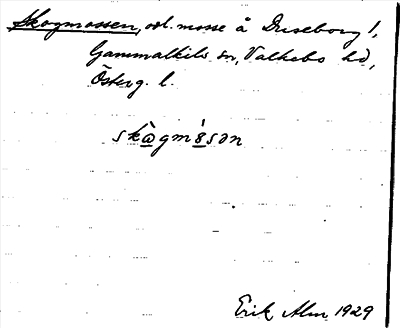 Skogmossen, odl. mosse å Duseborg 1,
Gammalkils sn, Valkebo hd,
Österg. l.
skògmósən
Erik Alm 1929